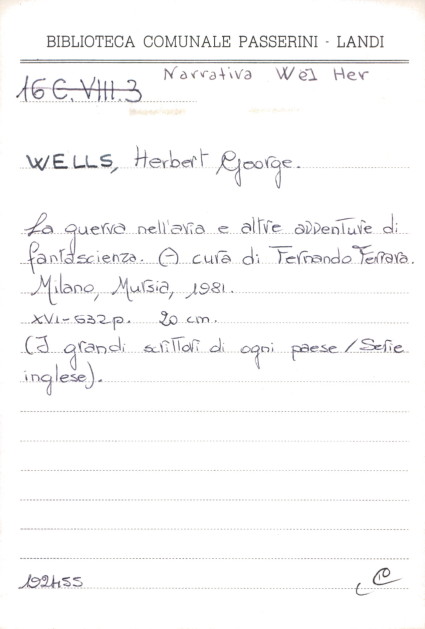 BIBLIOTECA COMUNALE PASSERINI - LANDI
Narrativa Wel Her
16 C. VIII. 3
WELLS, Herbert George.
La guerra nell'aria e altre avventure di
fantascienza. (-) cura di Fernando Ferrara.
Milano, Mursia, 1981.
XVI-532p. 20 cm.
(I grandi scrittori di ogni paese / Serie
inglese).
192455